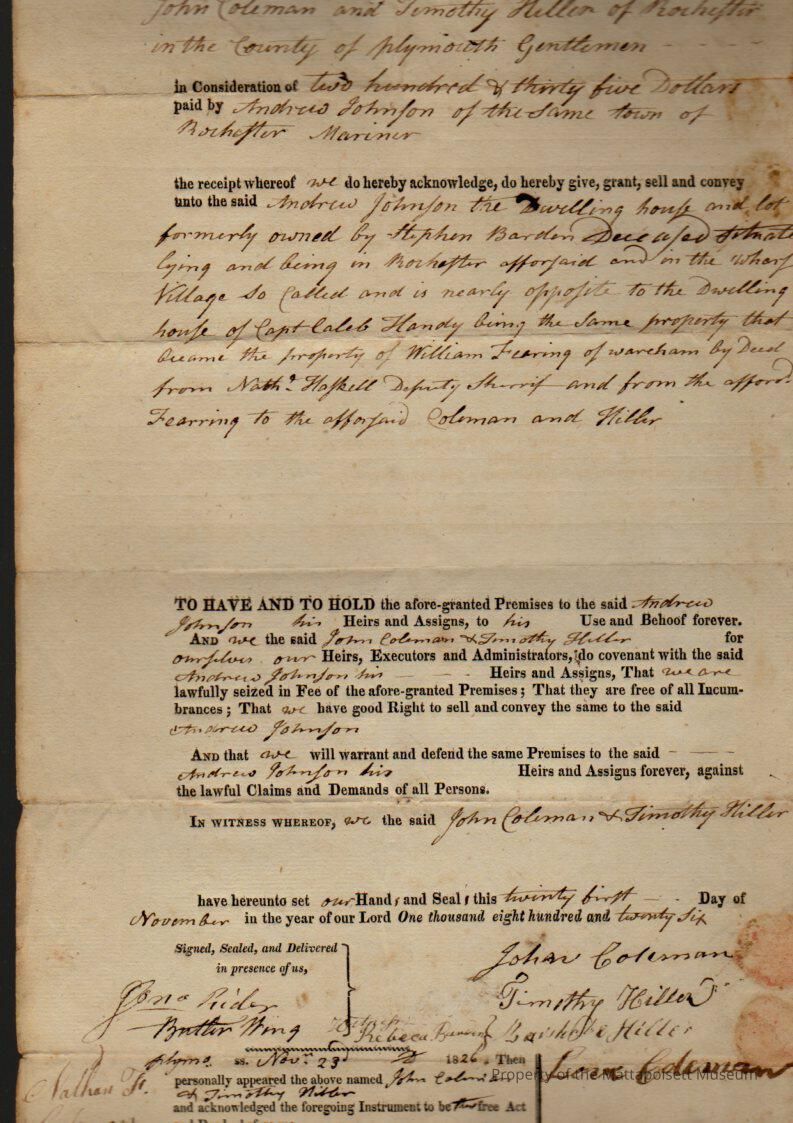 John Coleman and Timothy Hiller of Rochester
in the County of plymouth Gentlemen
in Consideration of two hundred & thirty five Dollars
paid by Andrew Johnson of the same town of
Rochester Mariner
the receipt whereof we do hereby acknowledge, do hereby give, grant, sell and convey
unto the said Andrew Johnson the Dwelling house and lot
formerly owned by Stephen Barden Deceased situate
lying and being in Rochester afforsaid and in the wharf
Village so Called and is nearly opposite to the Dwelling
house of Capt Caleb Handy being the same property that
became the property of William Fearing of wareham by Deed
from Nathl Haskell Deputy Sherrif and from the afford
Fearring to the afforsaid Coleman and Hiller
TO HAVE AND TO HOLD the afore-granted Premises to the said Andrew
Johnson his Heirs and Assigns, to his Use and Behoof forever.
AND we the said John Coleman & Timothy Hiller for
ourselves our Heirs, Executors and Administrators, do covenant with the said
Andrew Johnson his Heirs and Assigns, That we are
lawfully seized in Fee of the afore-granted Premises; That they are free of all Incum-
brances; That we have good Right to sell and convey the same to the said
Andrew Johnson
AND that we will warrant and defend the same Premises to the said
Andrew Johnson his Heirs and Assigns forever, against
the lawful Claims and Demands of all Persons.
IN WITNESS WHEREOF, we the said John Coleman & Timothy Hiller
have hereunto set our Hands and Seals this twenty first Day of
November in the year of our Lord One thousand eight hundred and twenty six
Signed, Sealed, and Delivered
in presence of us,
John Coleman
Timothy Hiller
Rider
Butler Wing
Rebeca
Hiller
Coleman
plymo ss. Novr 23d 1826. Then
personally appeared the above named John
& Timothy Hiller
and acknowledged the foregoing Instrument to be free Act
Nathan
Property of the Mattapoisett Museum